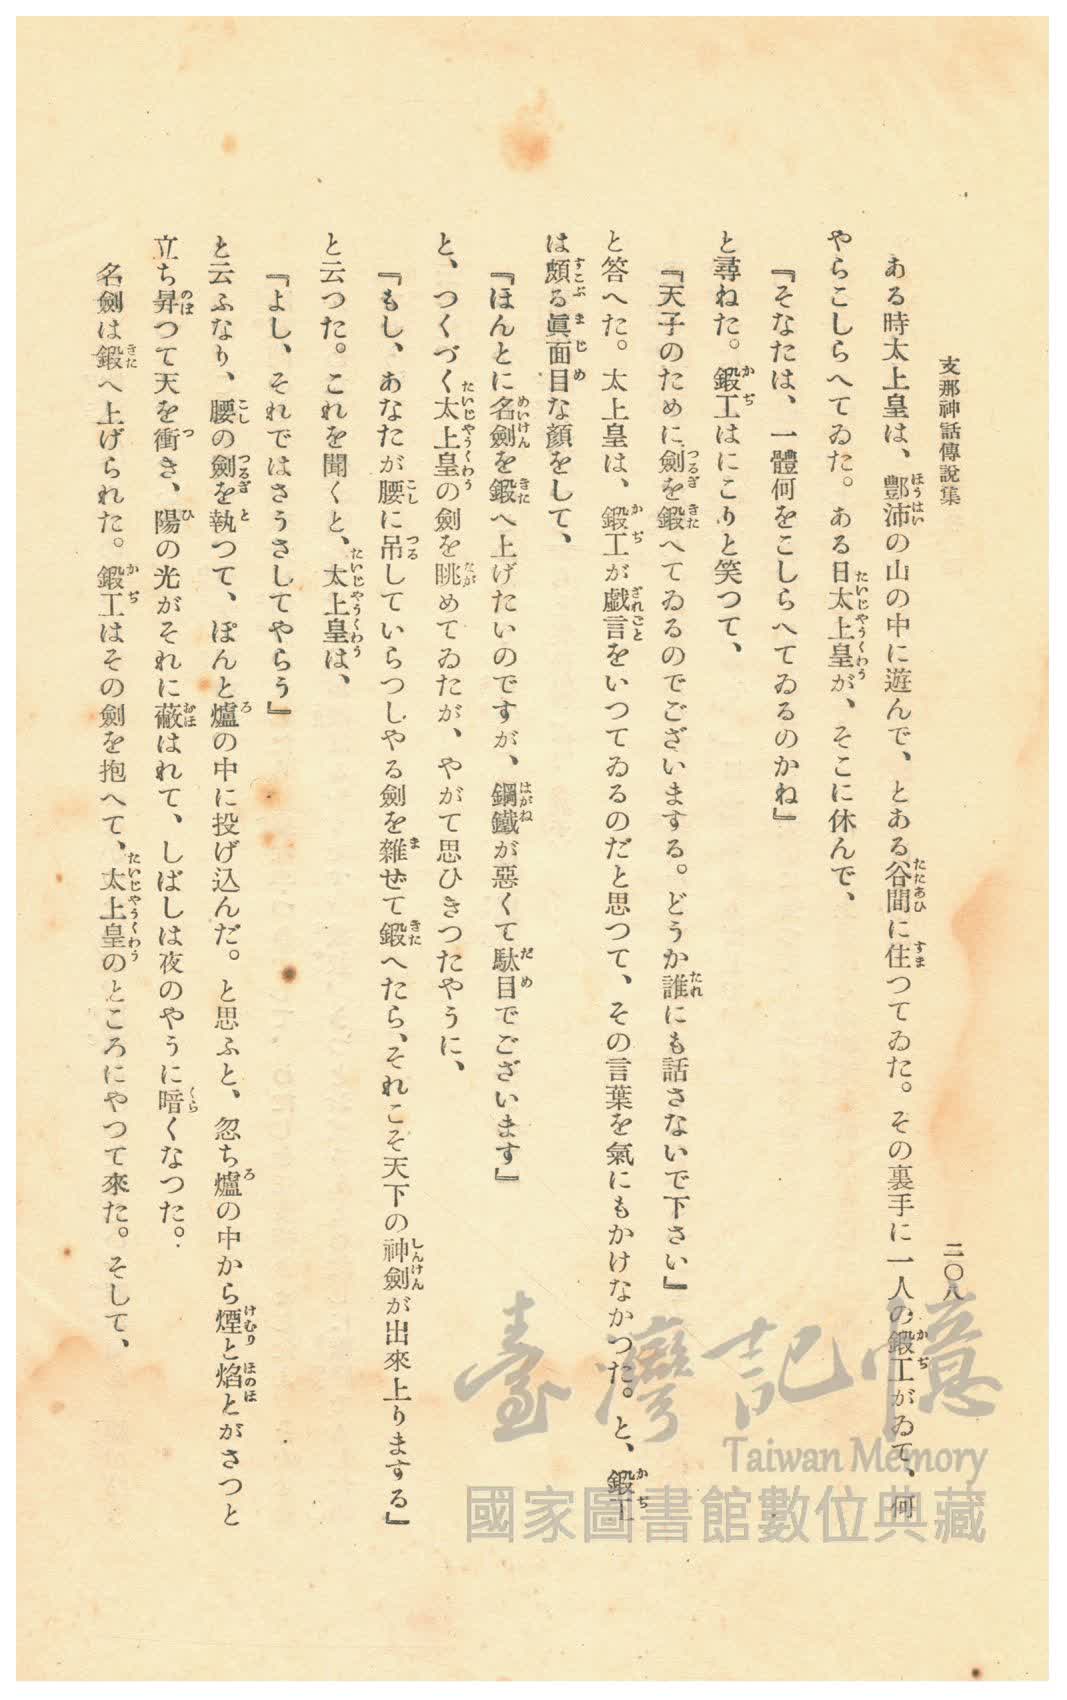 支那神話傳說集
二〇八
ある時太上皇は、酆沛の山の中に遊んで、とある谷間に住つてゐた。その裏手に一人の鍛工がゐて、何
やらこしらへてゐた。ある日太上皇が、そこに休んで、
『そなたは、一體何をこしらへてゐるのかね』
と尋ねた。鍛工はにこりと笑つて、
『天子のために劍を鍛へてゐるのでございまする。どうか誰にも話さないで下さい』
と答へた。太上皇は、鍛工が戯言をいつてゐるのだと思つて、その言葉を氣にもかけなかつた。と、鍛工
は頗る眞面目な顔をして、
『ほんとに名劍を鍛へ上げたいのですが、鋼鐵が惡くて駄目でございます』
と、つくづく太上皇の劍を眺めてゐたが、やがて思ひきつたやうに、
『もし、あなたが腰に吊していらつしやる劍を雜ぜて鍛へたら、それこそ天下の神劍が出來上りまする』
と云つた。これを聞くと、太上皇は、
『よし、それではさうさしてやらう』
と云ふなり、腰の劍を執つて、ぽんと爐の中に投げ込んだ。と思ふと、忽ち爐の中から煙と焰とがさつと
立ち昇つて天を衝き、陽の光がそれに蔽はれて、しばしは夜のやうに暗くなつた。
名劍は鍛へ上げられた。鍛工はその劍を抱へて、太上皇のところにやつて來た。そして、
臺灣記憶
Taiwan Memory
國家圖書館數位典藏